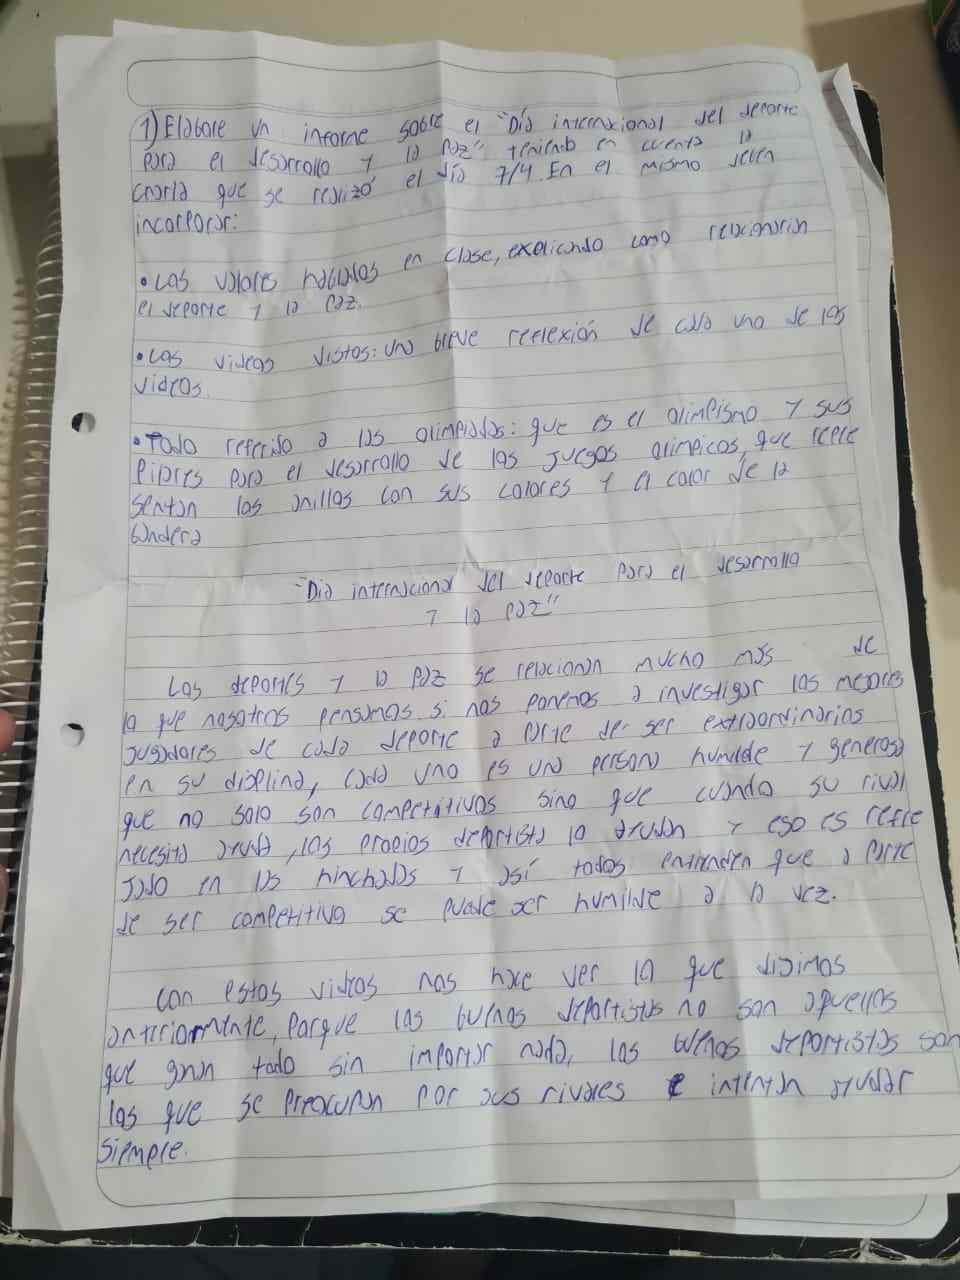 1) Elabore un informe sobre el "Día internacional del deporte
para el desarrollo y la paz" teniendo en cuenta la
charla que se realizó el día 7/4. En el mismo deben
incorporar:
• Los valores hablados en clase, explicando como relacionarian
el deporte y la paz.
• Los videos vistos: una breve reflexión de cada uno de los
videos.
• Todo referido a las olimpiadas: que es el olimpismo y sus
pilares para el desarrollo de los juegos olimpicos, que repre
sentan los anillos con sus colores y el color de la
bandera
"Día internacional del deporte para el desarrollo
y la paz"
Los deportes y la paz se relacionan mucho más de
lo que nosotros pensamos si nos ponemos a investigar los mejores
jugadores de cada deporte a parte de ser extraordinarios
en su displina, cada uno es una persona humilde y generosa
que no solo son competitivos sino que cuando su rival
necesita ayuda, los propios deportista lo ayudan y eso es refle
jado en las hinchadas y así todos entienden que a parte
de ser competitivo se puede ser humilde a la vez.
Con estos videos nos hace ver lo que digimos
anteriormente, porque los buenos deportistas no son aquellos
que ganan todo sin importar nada, los buenos deportistas son
los que se preocupan por sus rivales e intentan ayudar
siempre.